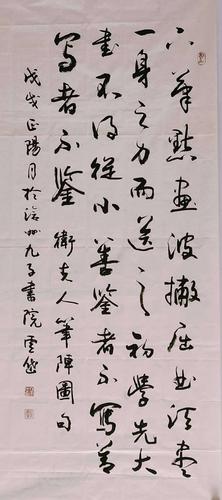 下筆點畫波撇屈曲須盡
一身之力而送之初學先大
書不得從小善鑒者不寫善
寫者不鑒 衛夫人筆陣圖句
戊戌正陽月於 九 書院雲